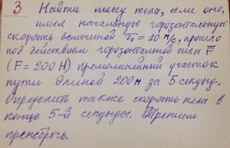 3 Найти массу тела, если оно,
имея начальную горизонтальную
скорость величиной V₀ = 10 м/с, прошло
под действием горизонтальной силы F
(F = 200 Н) прямолинейный участок
пути длиной 200 м за 5 секунд.
Определить также скорость тела в
конце 5-й секунды. Трением
пренебречь.